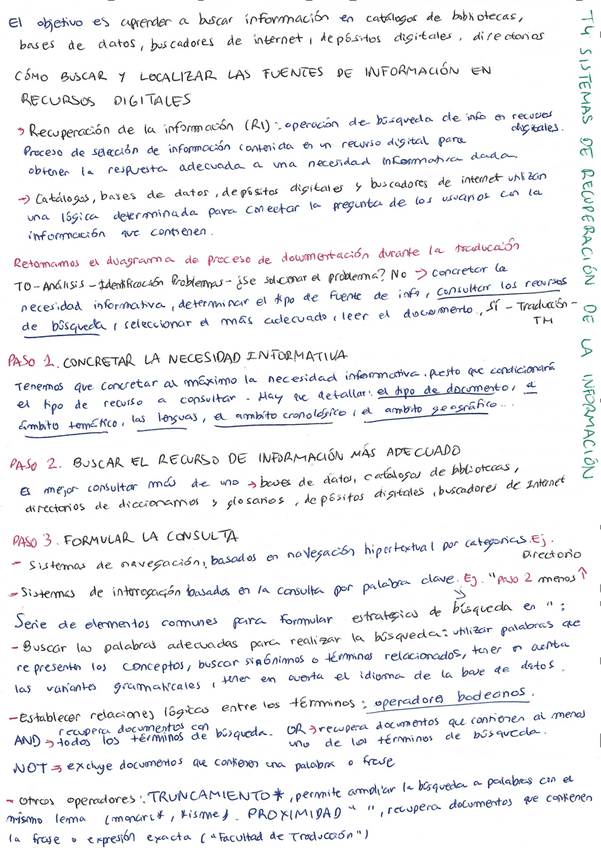 T4 SISTEMAS DE RECUPERACIÓN DE LA INFORMACIÓN
El objetivo es aprender a buscar información en catálogos de bibliotecas,
bases de datos, buscadores de internet, depósitos digitales, directorios
CÓMO BUSCAR Y LOCALIZAR LAS FUENTES DE INFORMACIÓN EN
RECURSOS DIGITALES
→ Recuperación de la información (RI): operación de búsqueda de info en recursos
digitales.
Proceso de selección de información contenida en un recurso digital para
obtener la respuesta adecuada a una necesidad informativa dada.
→ Catálogos, bases de datos, depósitos digitales y buscadores de internet utilizan
una lógica determinada para conectar la pregunta de los usuarios con la
información que contienen.
Retomamos el diagrama de proceso de documentación durante la traducción
TO - Análisis - Identificación Problemas - ¿Se solucionar el problema? No → concretar la
necesidad informativa, determinar el tipo de fuente de info, consultar los recursos
de búsqueda, seleccionar el más adecuado, leer el documento, Sí - Traducción -
TM
PASO 1. CONCRETAR LA NECESIDAD INFORMATIVA
Tenemos que concretar al máximo la necesidad informativa. Puesto que condicionará
el tipo de recurso a consultar. Hay que detallar: el tipo de documento, el
ámbito temático, las lenguas, el ambito cronológico, el ambito geográfico...
PASO 2. BUSCAR EL RECURSO DE INFORMACIÓN MÁS ADECUADO
es mejor consultar más de uno → bases de datos, catálogos de bibliotecas,
directorios de diccionarios y glosarios, depósitos digitales, buscadores de Internet
PASO 3. FORMULAR LA CONSULTA
- Sistemas de navegación, basados en navegación hipertextual por categorías. Ej.
Directorio
- Sistemas de interogación basados en la consulta por palabra clave. Ej. "paso 2 menos ↑
Serie de elementos comunes para formular estrategias de búsqueda en ":
- Buscar las palabras adecuadas para realizar la búsqueda: utilizar palabras que
representen los conceptos, buscar sinónimos o términos relacionados, tener en cuenta
las variantes gramaticales, tener en cuenta el idioma de la base de datos.
- Establecer relaciones lógicas entre los términos: operadores booleanos.
AND → recupera documentos con todos los términos de búsqueda. OR → recupera documentos que contienen al menos
uno de los términos de búsqueda.
NOT → excluye documentos que contienen una palabra o frase
- Otros operadores: TRUNCAMIENTO *, permite ampliar la búsqueda a palabras con el
mismo lema (monarc*, *isme). PROXIMIDAD " ", recupera documentos que contienen
la frase o expresión exacta ("Facultad de Traducción")